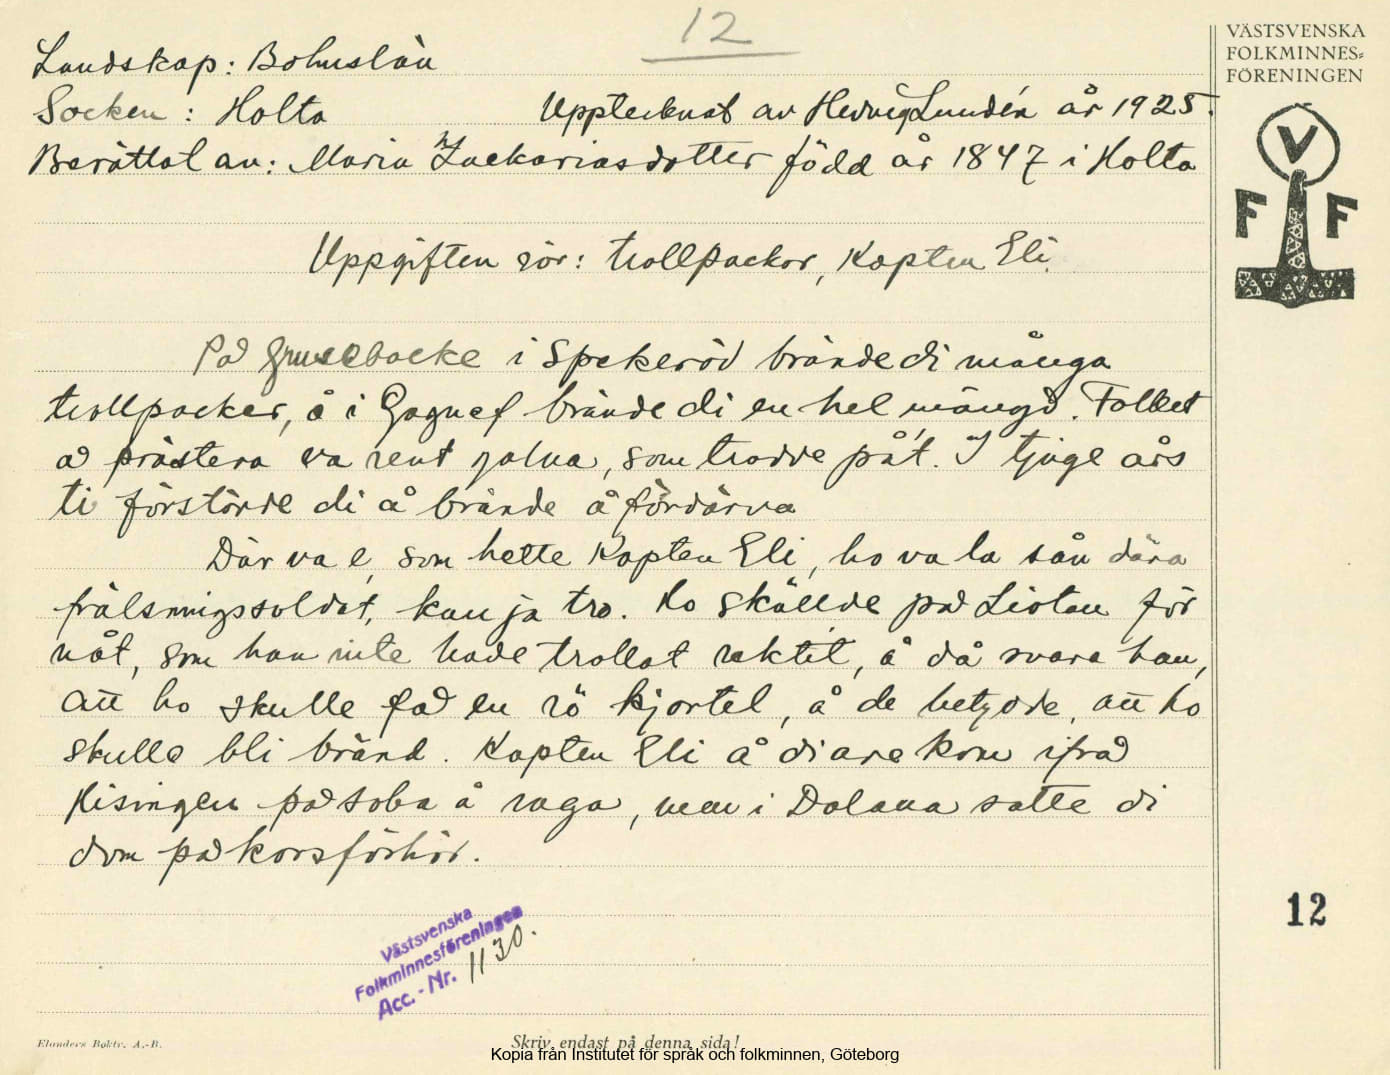 12
VÄSTSVENSKA
FOLKMINNES-
FÖRENINGEN
Landskap: Bohuslän
Socken : Holta Upptecknat av Hedvig Lundén år 1925.
Berättat av: Maria Zackariasdotter född år 1847 i Holta
V
F F
Uppgiften rör: trollpackor, Kapten Eli.
På i Spekeröd brände di många
trollpacker, å i Gagnef brände di en hel mängd. Folket
å prästera va rent galna, som trodde på't. I tjuge års
ti förstörde di å brände å fördärva
Där va e, som hette Kapten Eli, ho va la sån dära
frälsningssoldat, kan ja tro. Ho skällde på Liotan för
nåt, som han inte hade trollat raktit, å då svara han,
att ho skulle få en rö kjortel, å de betyde, att ho
skulle bli bränd. Kapten Eli å di are kom ifrå
Hisingen på soba å raga, men i Dalana satte di
dom på korsförhör.
Västsvenska
Folkminnesföreningen
Acc.-Nr. 1130.
12
Elanders Boktr. A.-B.
Skriv endast på denna sida!
Kopia från Institutet för språk och folkminnen, Göteborg